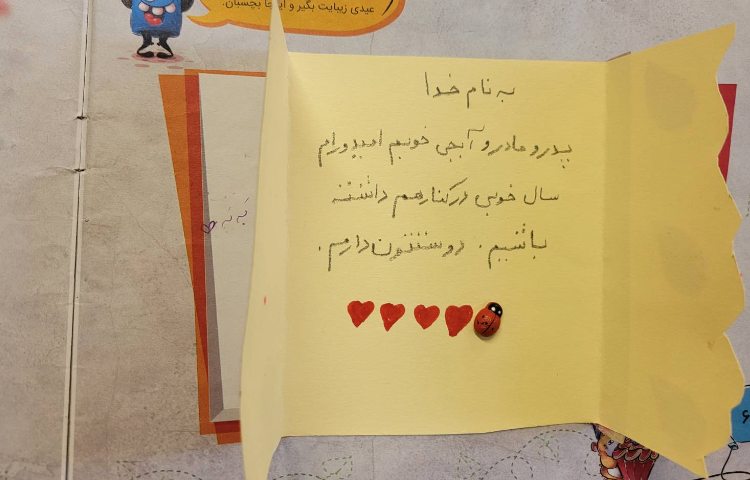 عیدی زیبایت بگیر و اینجا بچسبان.
به نام خدا
پدر و مادر و آبجی خوبم امیدورام
سال خوبی در کنار هم داشته
باشیم. دوستتون دارم.